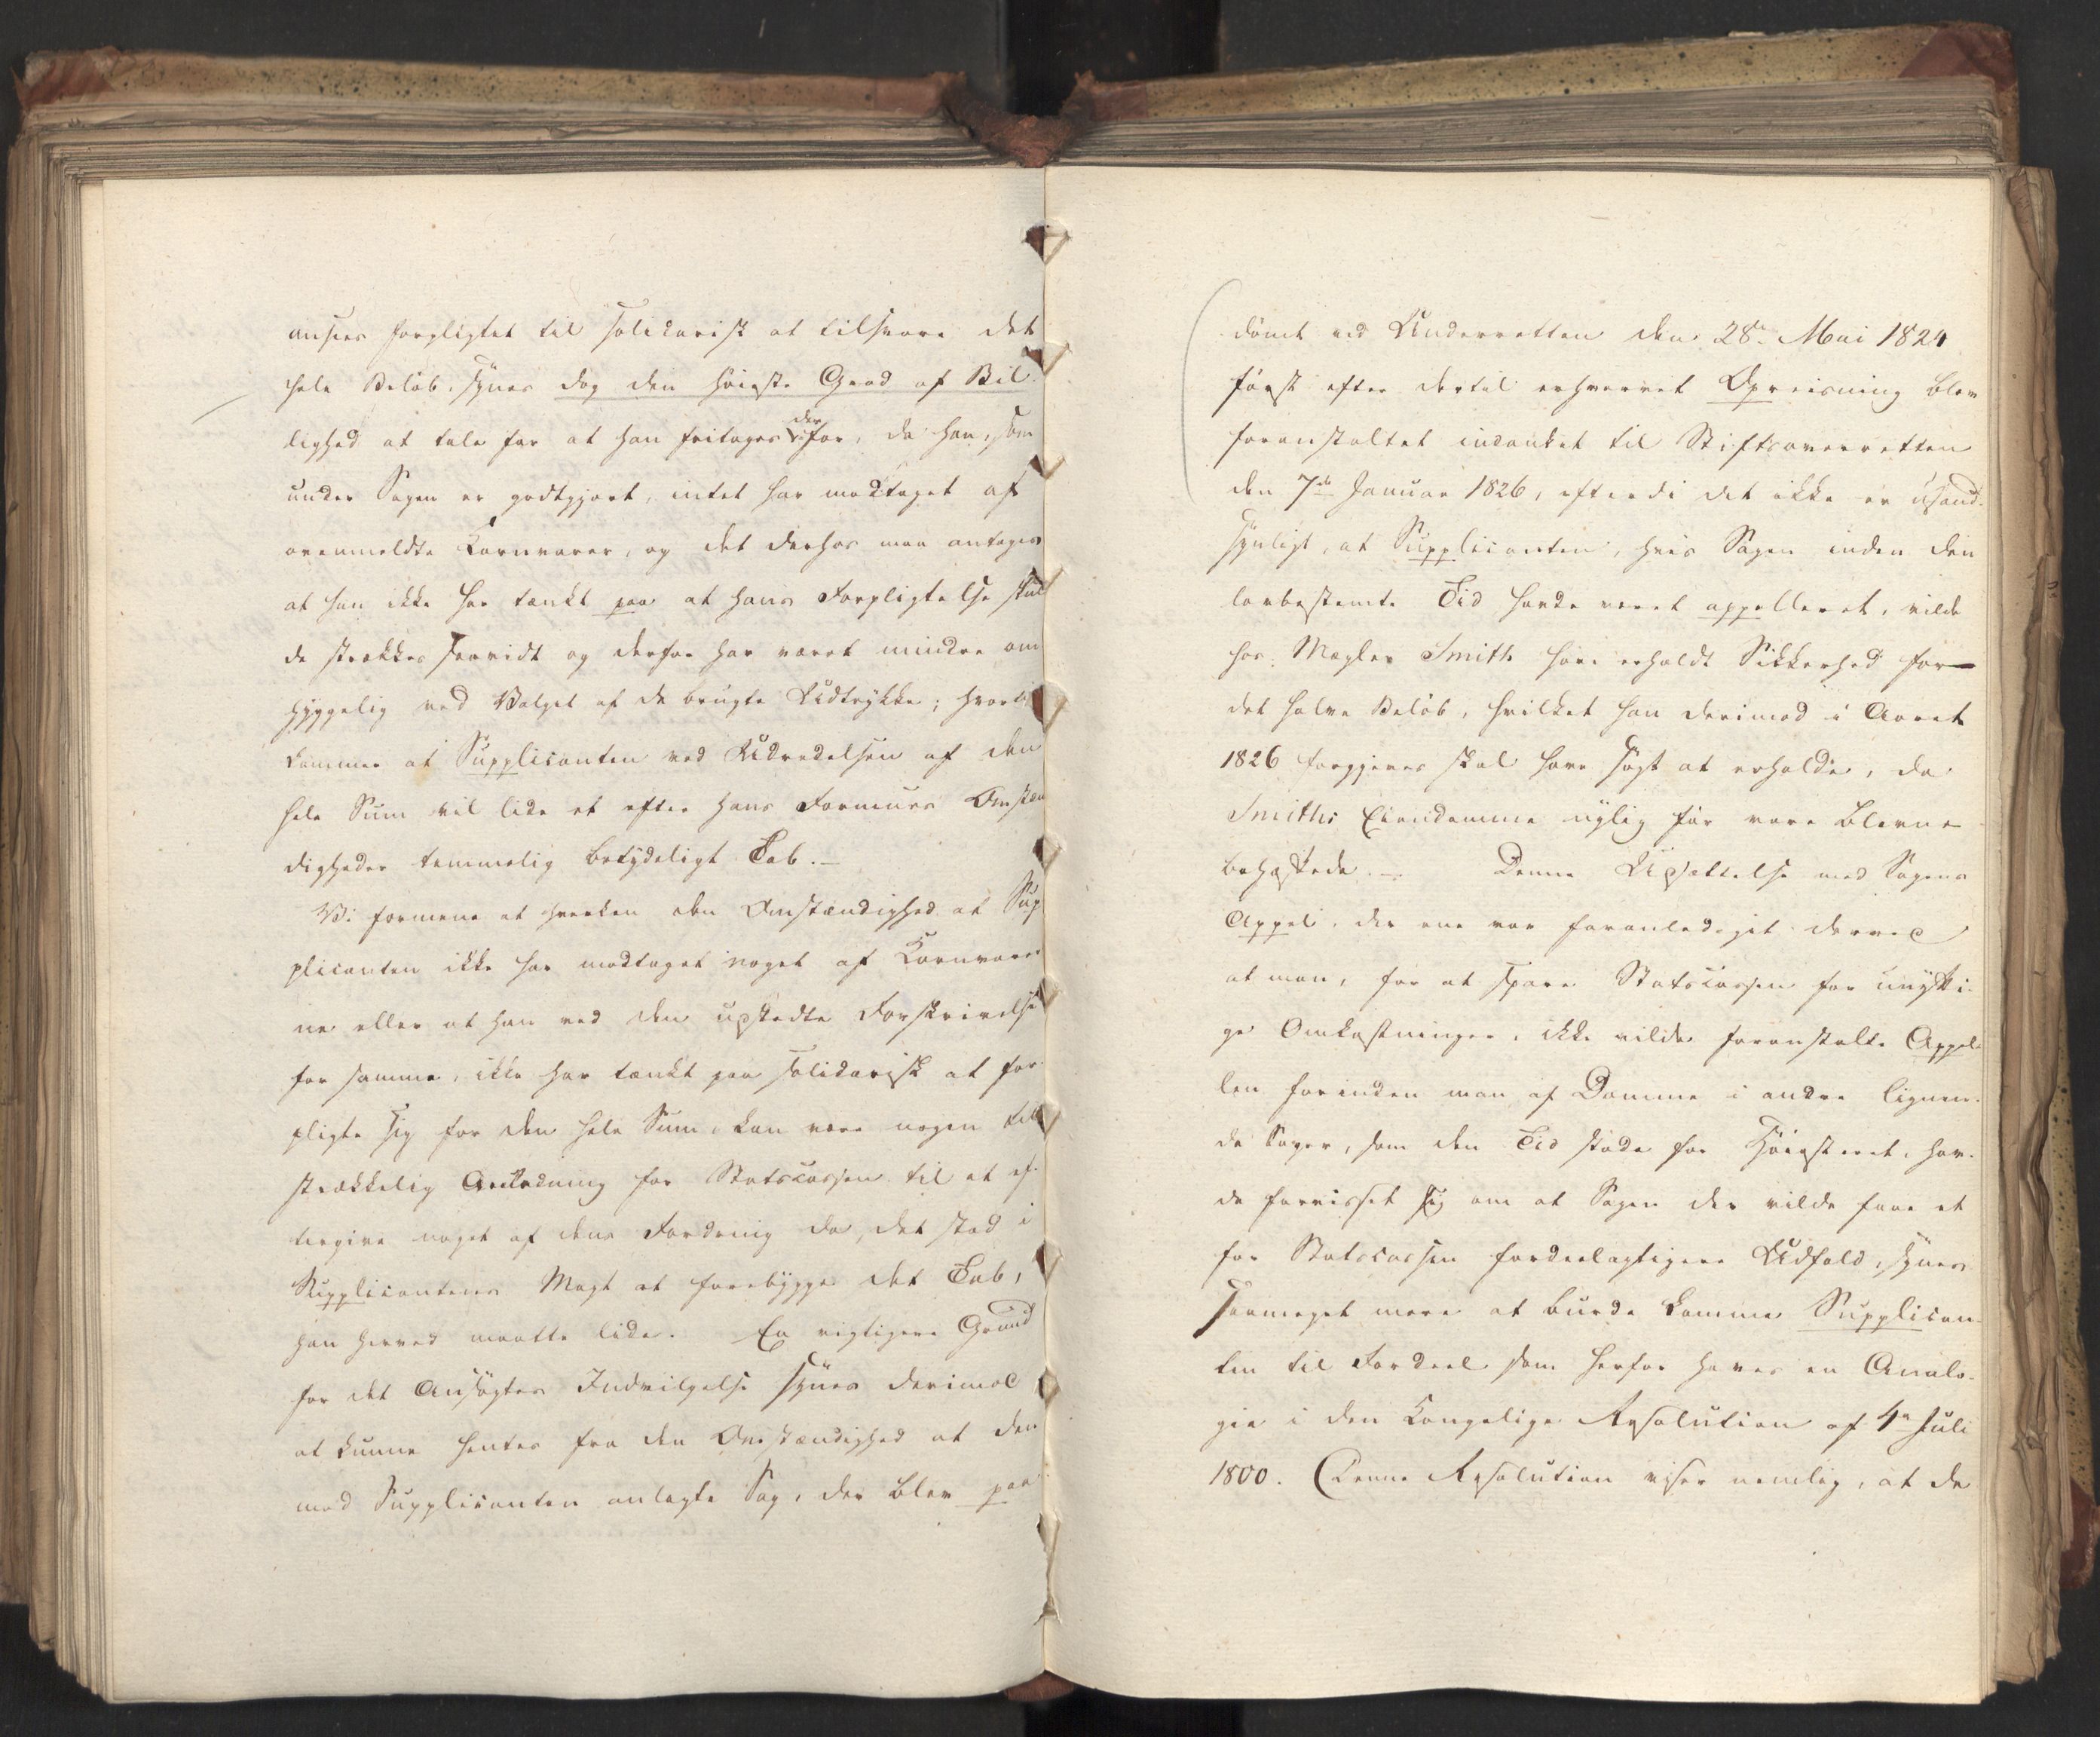 ansees forpligtet til solidarisk at tilsvare det
hele Beløb, synes dog den høieste Grad af Bil-
lighed at tale for at han fritages derfor, da han, som
under Sagen er godtgjort, intet har modtaget af
ovenmeldte Kornvarer, og det derhos maa antages
at han ikke har tænkt paa at hans Forpligtelse skul
de strækkes saavidt og derfor har været mindre om
hyggelig ved Valget af de brugte Udtrykke; hvortil
kommer at Supplicanten ved Udredelsen af den
hele Sum vil lide et efter hans Formues Omstæn
digheder temmelig betydeligt Tab.—
Vi formene at hverken den Omstændighed at Sup
plicanten ikke har modtaget noget af Kornvarer
ne eller at han ved den udstedte Forskrivelse
for samme, ikke har tænkt paa solidarisk at for
pligte sig for den hele Sum, kan være nogen til
strækkelig Anledning for Statscassen til at ef-
tergive noget af dens Fordring da, det stod i
Supplicantens Magt at forebygge det Tab,
han herved maatte lide. En vigtigere Grund
for det Ansøgtes Indvilgelse synes derimod
at kunne hentes fra den Omstændighed at den
mod Supplicanten anlagte Sag, der blev paa
dømt ved Underretten den 28de Mai 1824
først efter dertil erhvervet Opreisning blev
foranstaltet indanket til Stiftsoverretten
den 7de Januar 1826, efterdi det ikke er usand-
synligt, at Supplicanten, hvis Sagen inden den
lovbestemte Tid havde været appelleret, vilde
hos Mægler Smith have erholdt Sikkerhed for
det halve Beløb, hvilket han derimod i Aaret
1826 forgjeves skal have søgt at erholde, da
Smiths Eiendomme nylig før vare blevne
behæftede.— Denne Udsættelse med Sagens
Appel, der ene var foranlediget derved
at man, for at spare Statscassen for unytti-
ge Omkostninger, ikke vilde foranstalte Appel-
len forinden man af Domme i andre lignen-
de Sager, som den Tid stode for Høiesteret, hav-
de forvisset sig om at Sagen der vilde faae et
for Statscassen fordeelagtigere Udfald, synes
saameget mere at burde komme Supplican-
ten til Fordeel som herfor haves en Analo-
gie i den Kongelige Resolution af 4de Juli
1800. Denne Resolution viser nemlig, at de